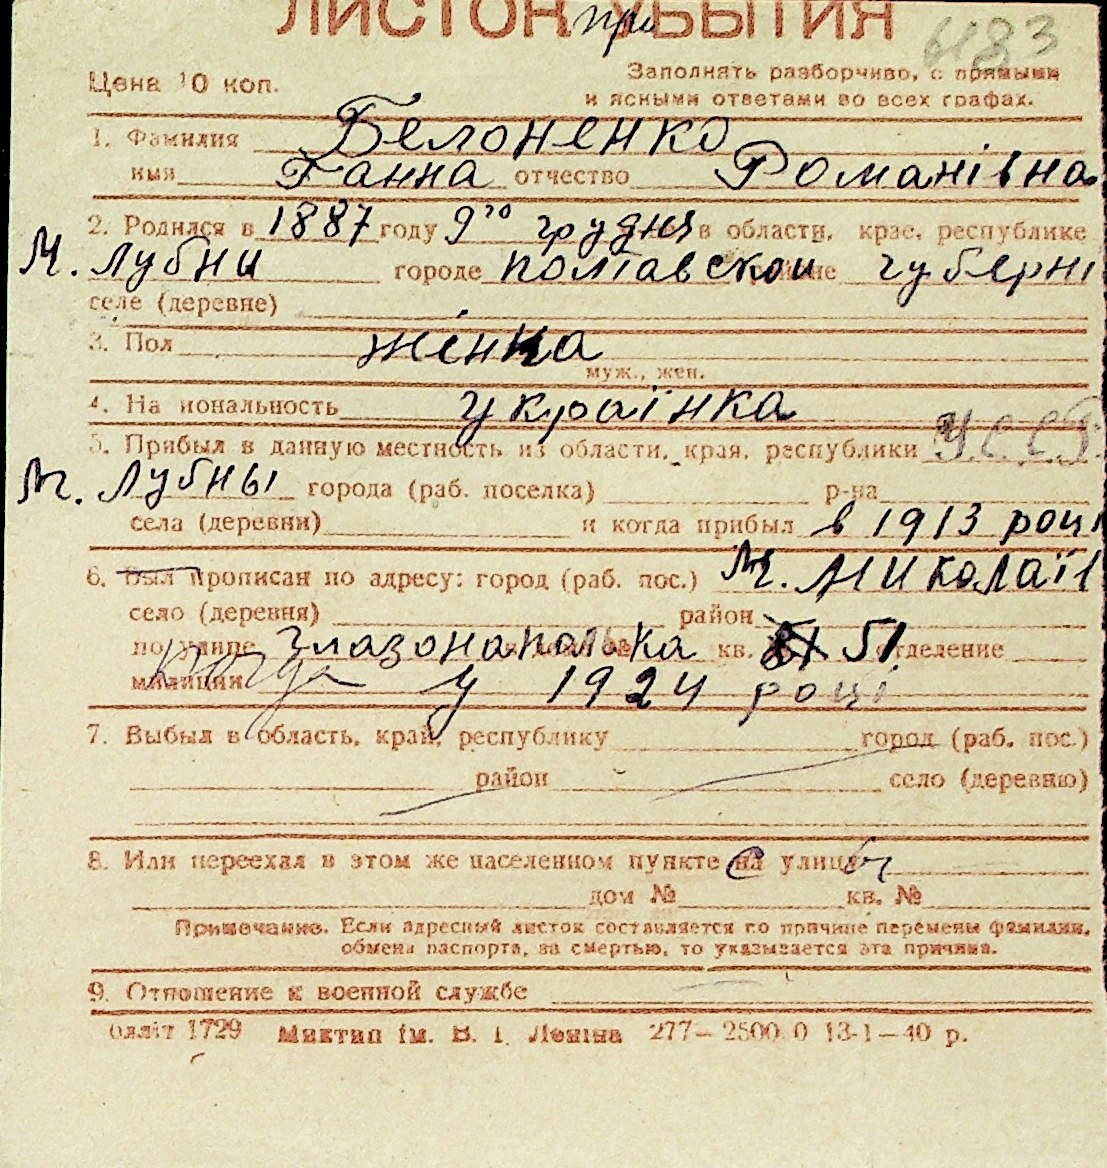 ЛИСТОК при УБЫТИЯ 6183
Цена 10 коп. Заполнять разборчиво, с прямыми
и ясными ответами во всех графах.
1. Фамилия Белоненко
имя Ганна отчество Романівна
2. Родился в 1887 году 9го грудня в области, крае, республике
М. Лубни городе полтавской районе губерні
селе (деревне)
3. Пол жінка
муж., жен.
4. Национальность українка
5. Прибыл в данную местность из области, края, республики УССР
М. Лубны города (раб. поселка) р-на
села (деревни) и когда прибыл в 1913 році
6. Был прописан по адресу: город (раб. пос.) М. Миколаїв
село (деревня) район
по улице кв. 51 отделение
милиции когда у 1924 році
7. Выбыл в область, край, республику город (раб. пос.)
район село (деревню)
8. Или переехал в этом же населенном пункте на улицу
дом № кв. №
Примечание. Если адресный листок составляется по причине перемены фамилии,
обмена паспорта, за смертью, то указывается эта причина.
9. Отношение к военной службе
Оллiт 1729 Миктип ім. В. І. Леніна 277—2500 0 13-1—40 р.